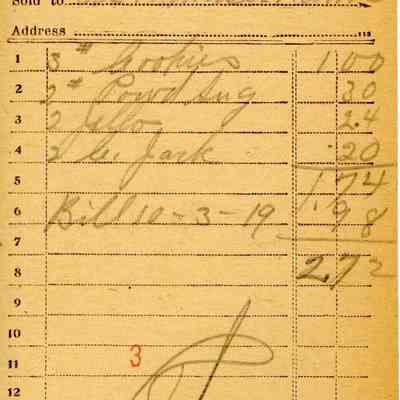 Sold to
Address
1 3# Cookies 1 00
2 2# Powd Sug 30
3 2 Jello 24
4 2 C. Jack 20
5 1.74
6 Bill 10-3-19 .98
7
8 2.72
9
10
11 3
12